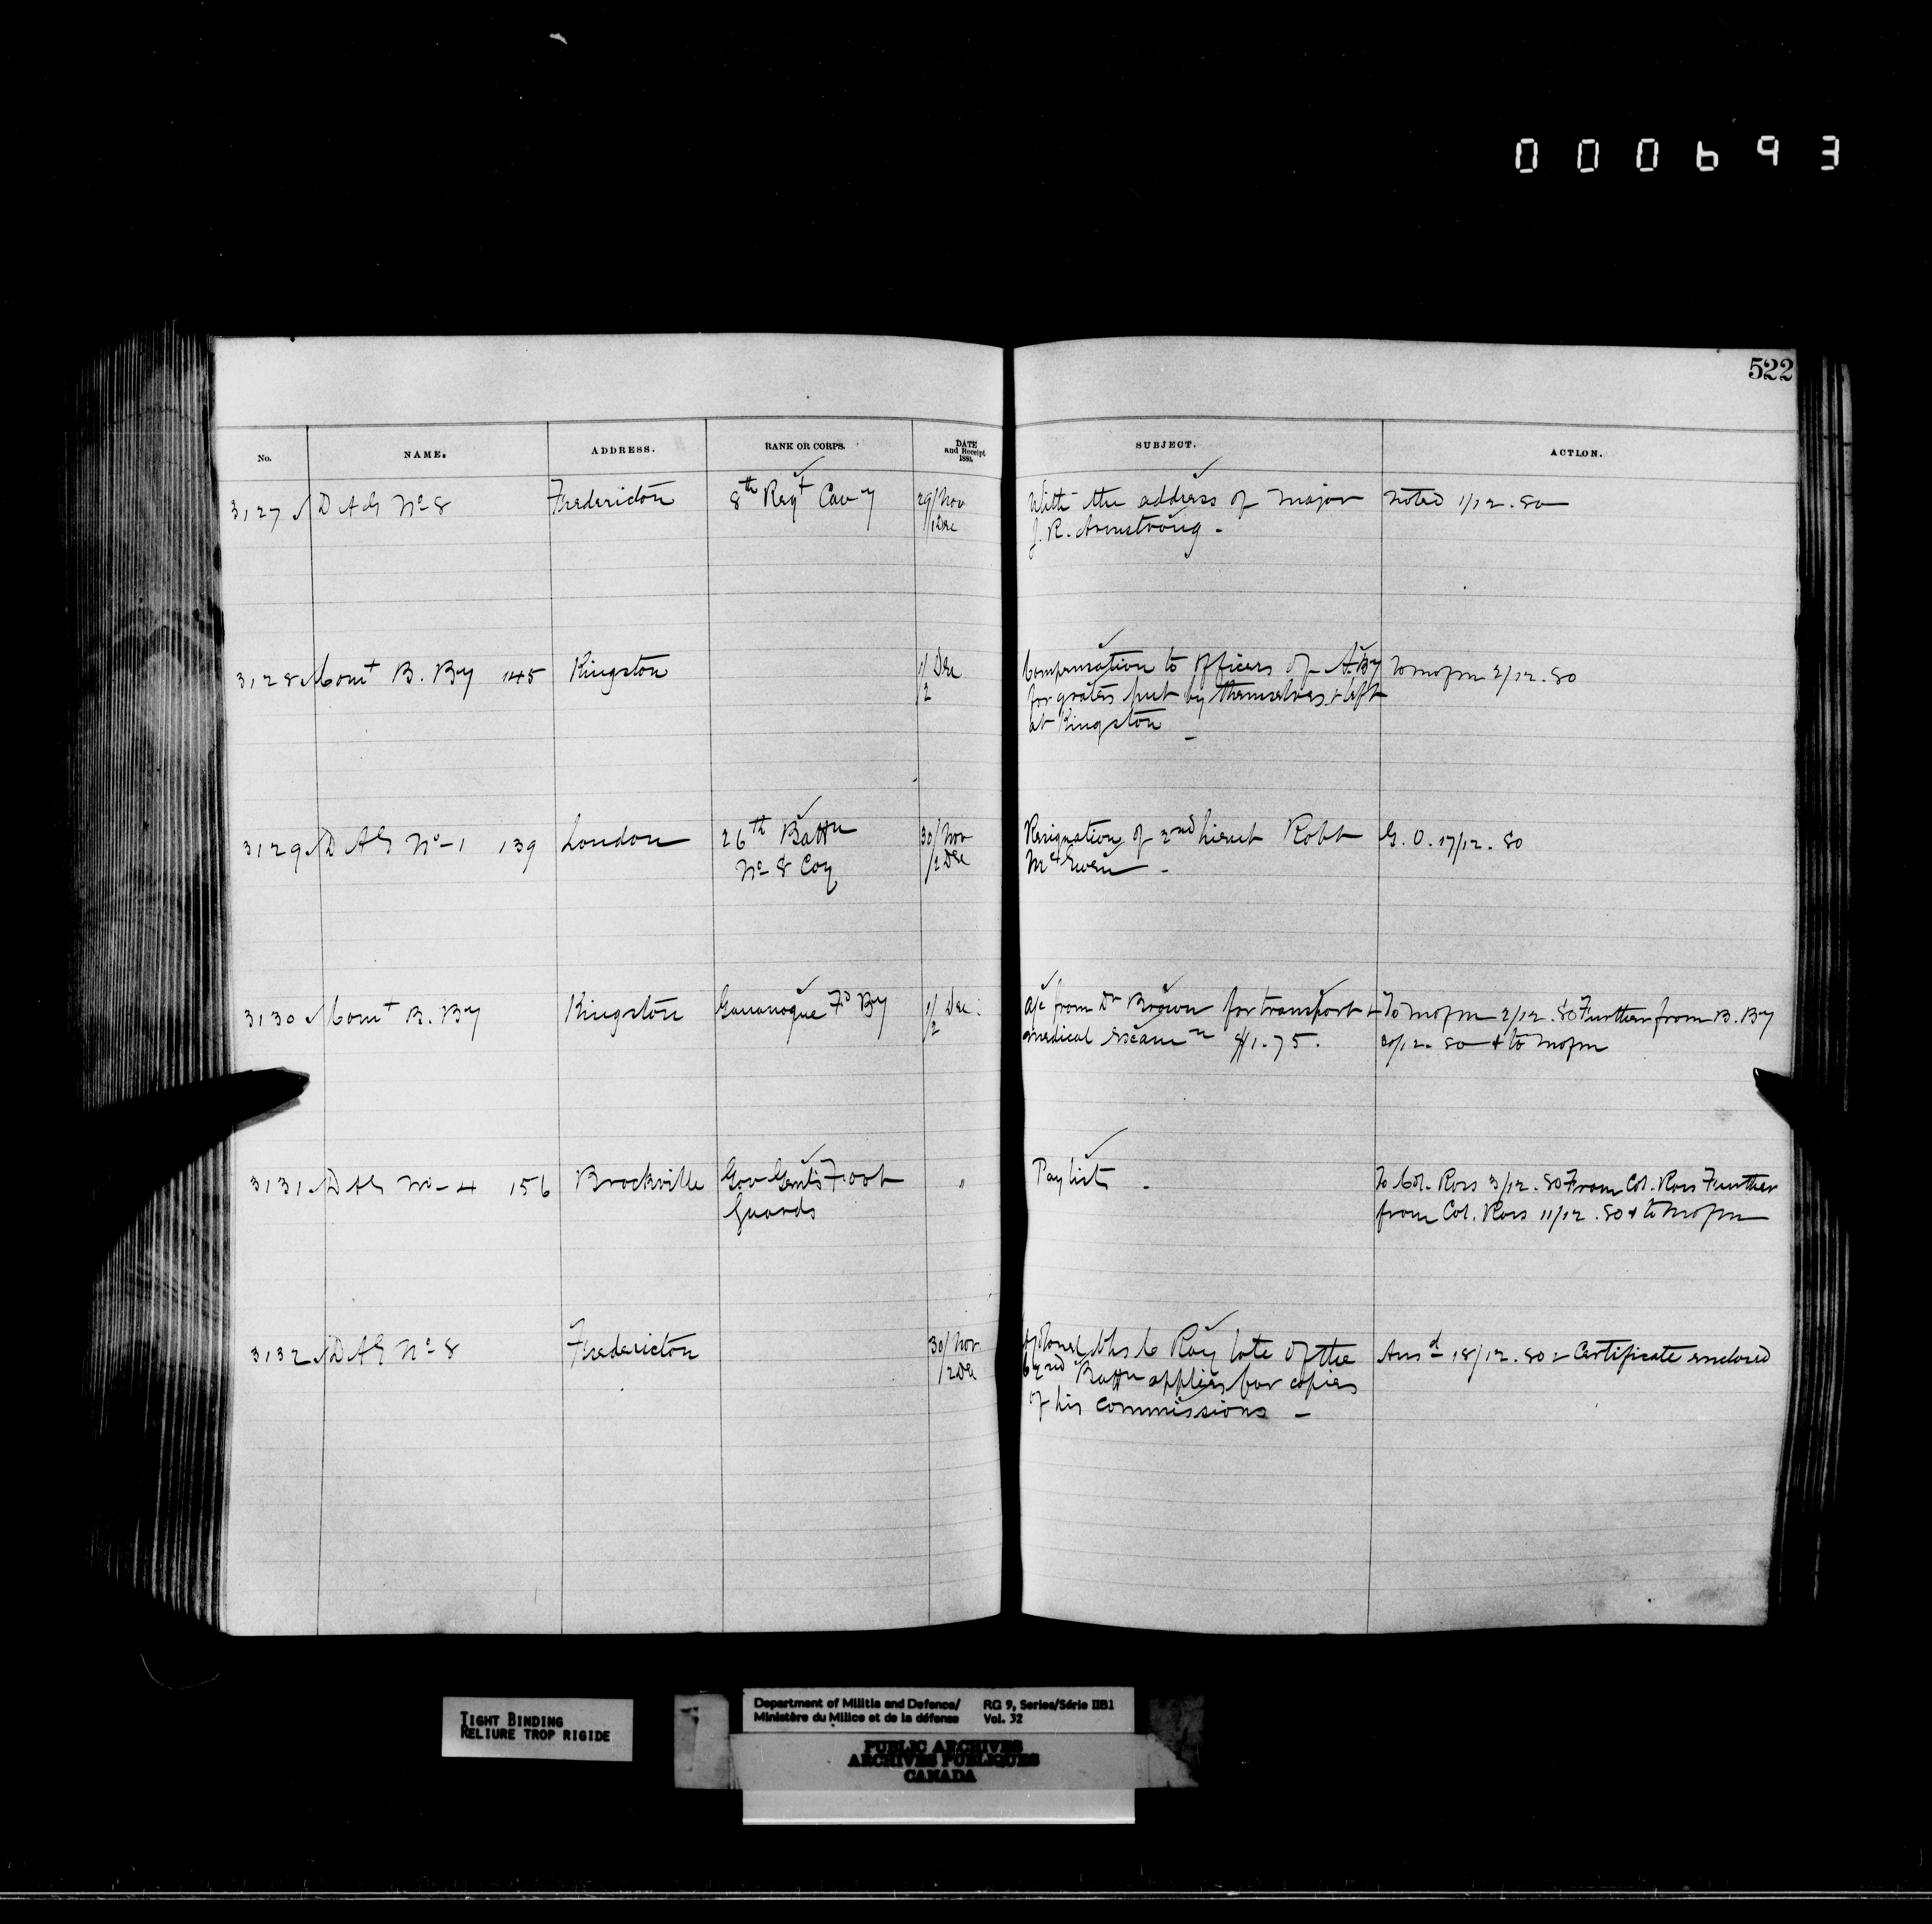 000693
522
No. NAME. ADDRESS. RANK OR CORPS. DATE and Receipt 1880. SUBJECT. ACTION.
3127 DAG No 8 Fredericton 8th Regt Cavy 29/Nov With the address of Major Noted 1/12.80
/1 Dec J. R. Armstrong.
3128 Comt B. By 145 Kingston 1/Dec Compensation to Officers of A. By To mofm 2/12.80
/2 for grates put by themselves & left
at Kingston
3129 DAG No 1 139 London 26th Battn 30/Nov Resignation of 2nd Lieut Robt G. O. 17/12.80
No 8 Coy /2 Dec McEwen
3130 Comt B. By Kingston Gananoque Fd By 1/Dec. A/c from Dr Brown for transport & To mofm 2/12.80 Further from B. By
/2 medical examn $1.75. 20/12.80 & to mofm
3131 DAG No 4 156 Brockville Gov Genl's Foot " Paylist To Col. Ross 3/12.80 From Col. Ross Further
Guards from Col. Ross 11/12.80 & to mofm
3132 DAG No 8 Fredericton 30/Nov Ray late of the Ansd 18/12.80 & Certificate enclosed
/2 Dec 62nd Battn applies for copies
of his commissions
TIGHT BINDING
RELIURE TROP RIGIDE
Department of Militia and Defence/ RG 9, Series/Série IIB1
Ministère du Milice et de la défense Vol. 32
PUBLIC ARCHIVES
ARCHIVES PUBLIQUES
CANADA